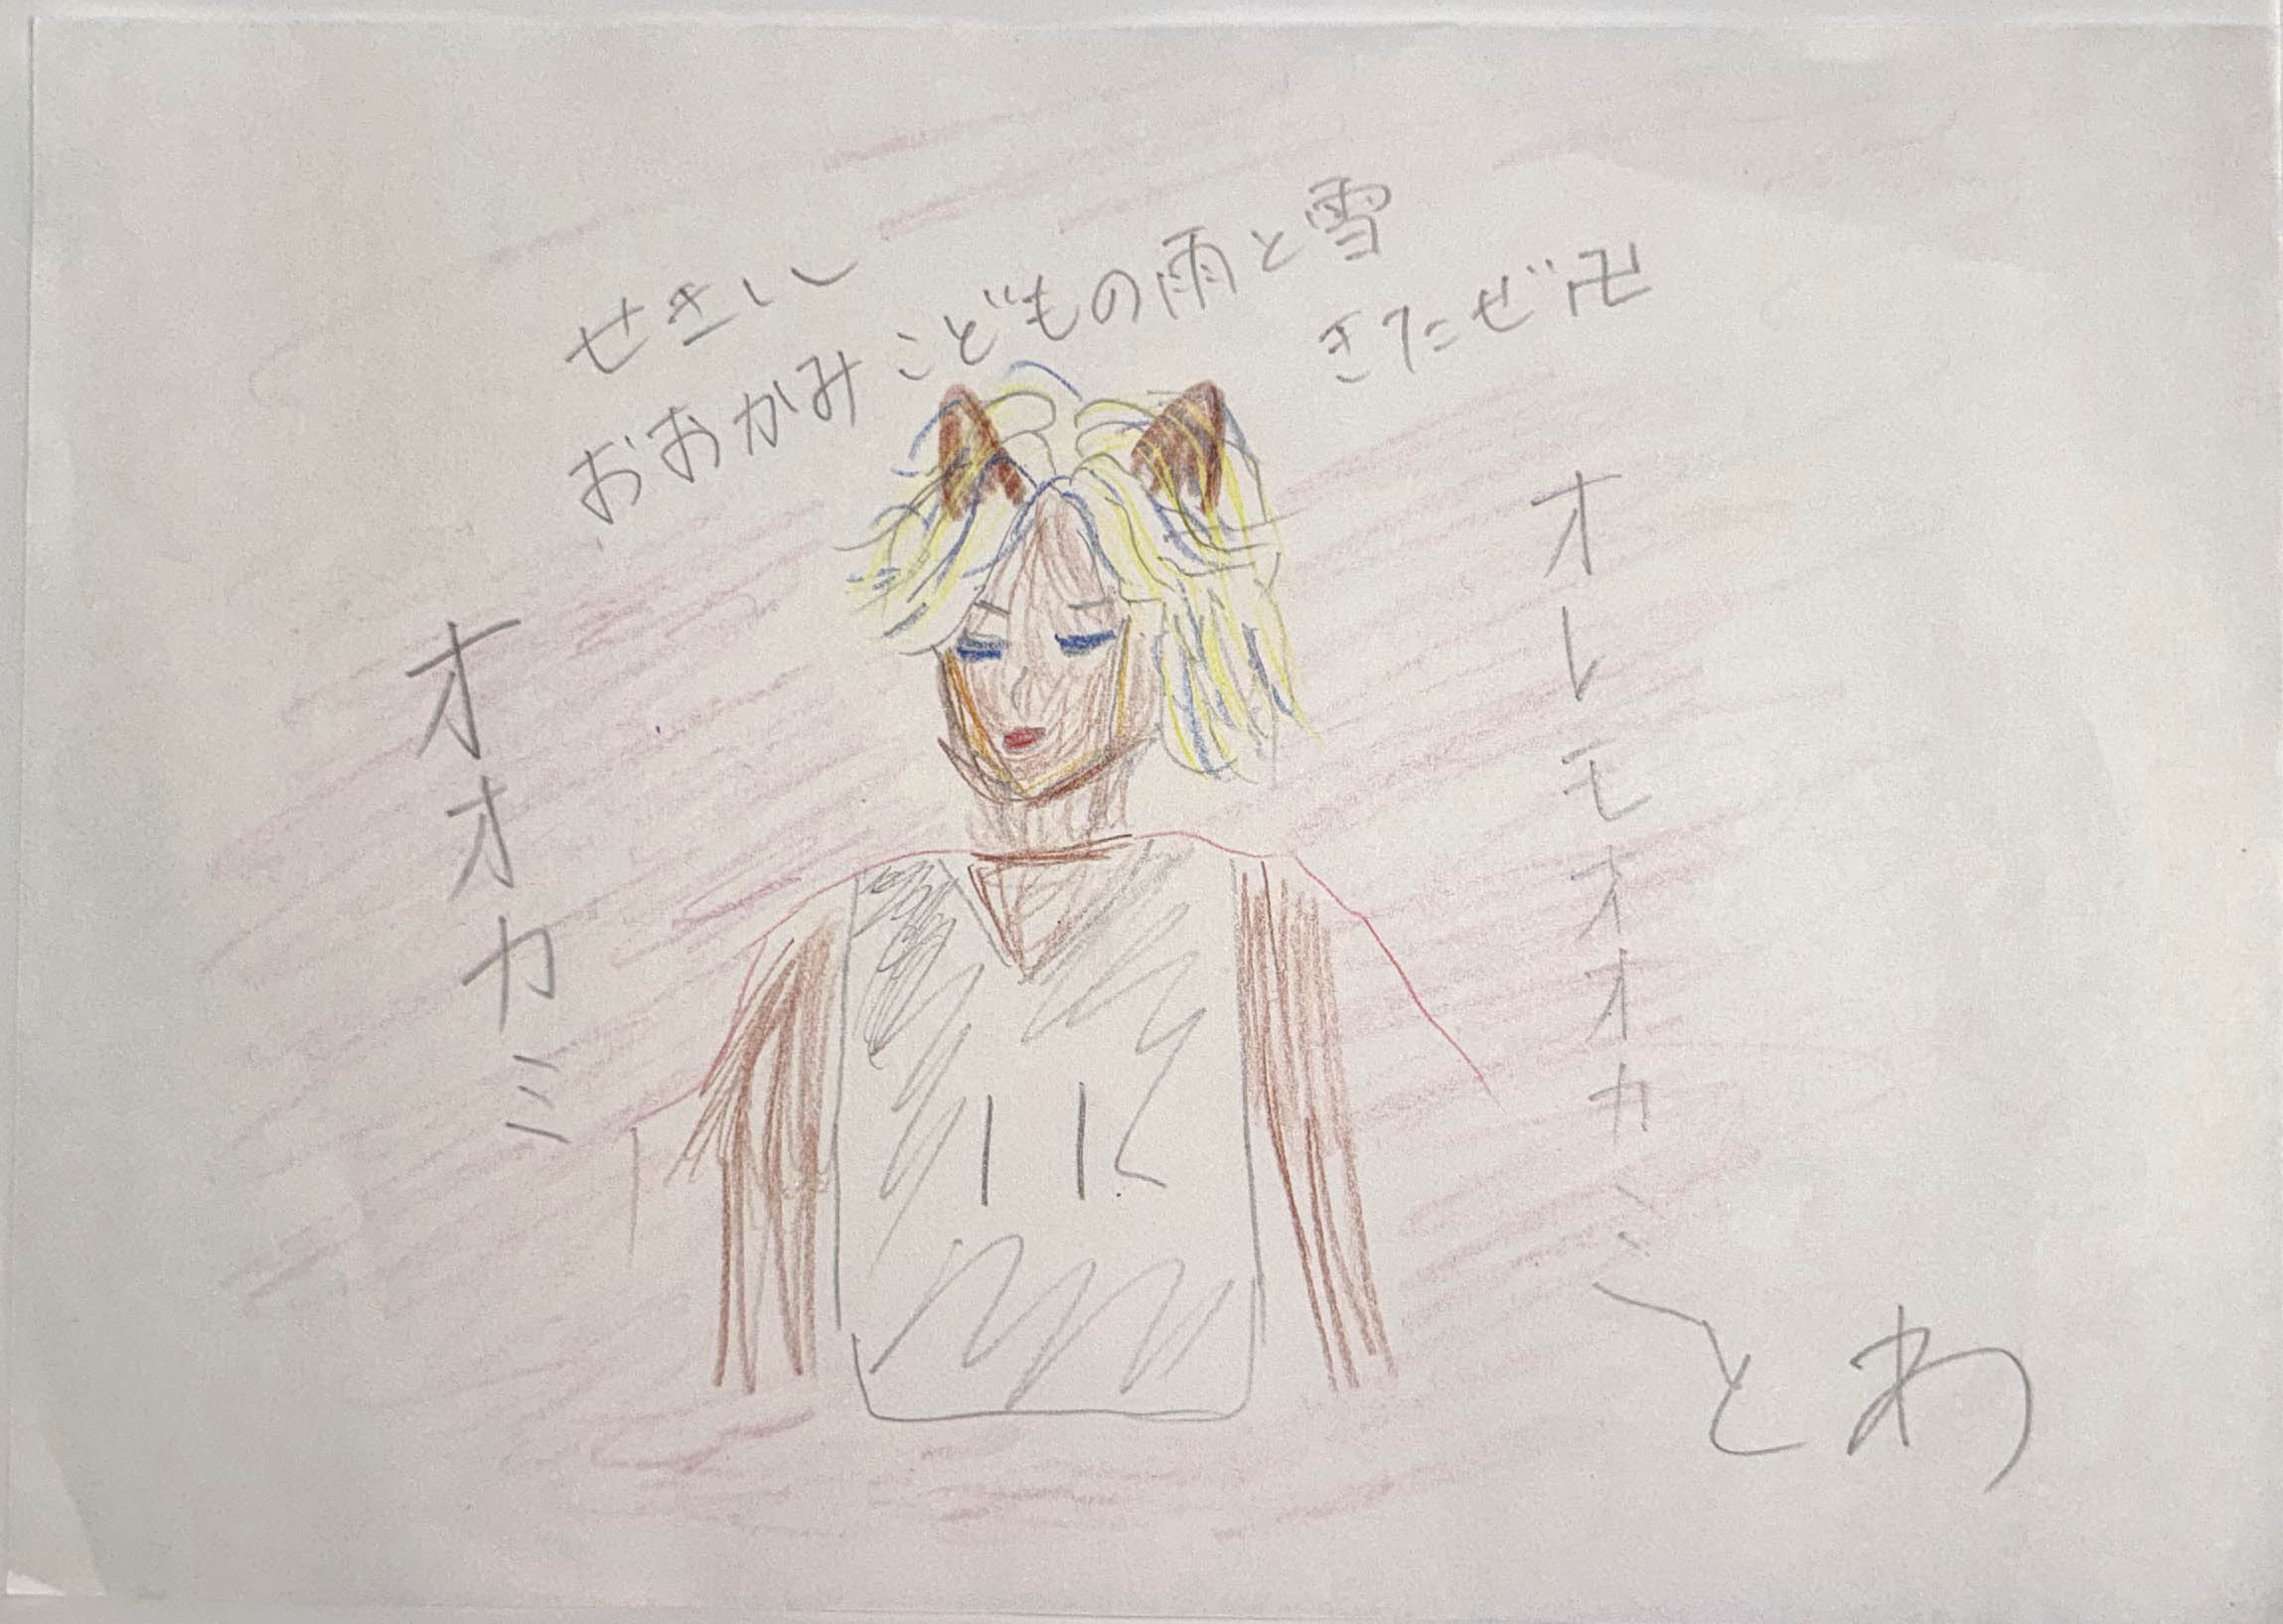 せきい
おおかみこどもの雨と雪
きたぜ卍
オオカミ
オレモオオカミ
とわ
11